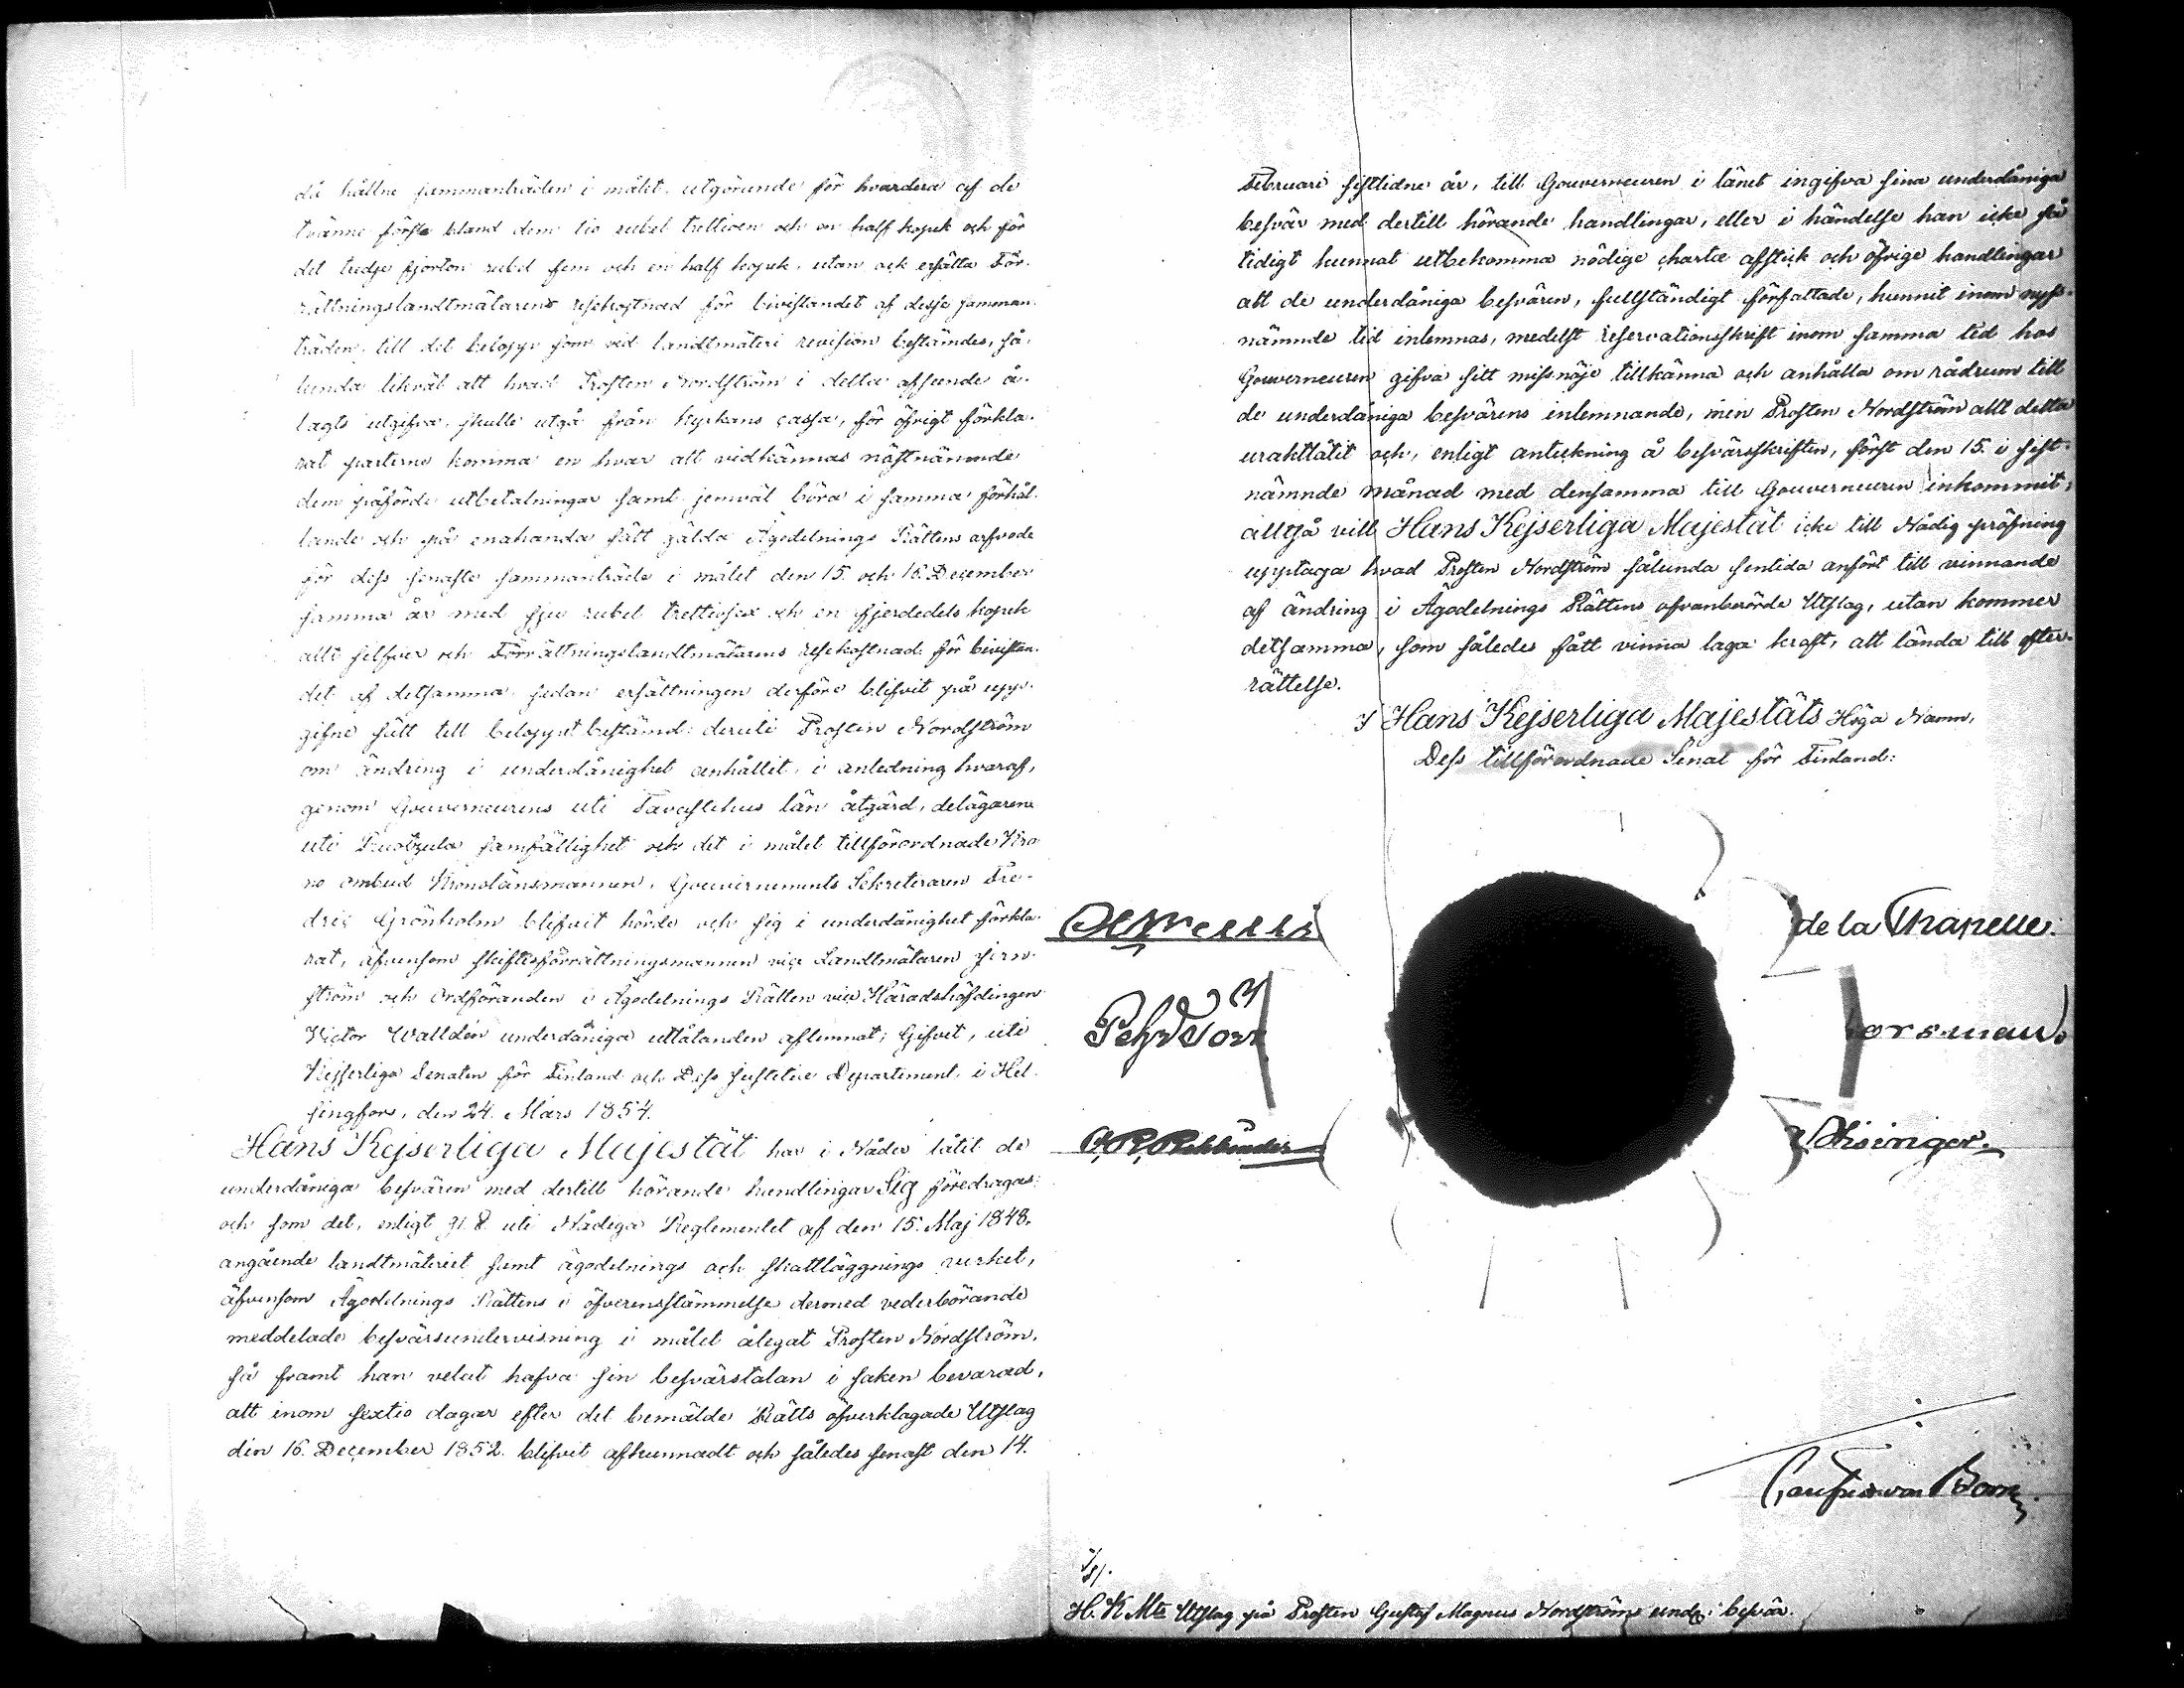 då hållne sammanträden i målet, utgörande för hvardera af de
tvänne förste bland dem tio rubel trettioen och en half kopek och för
det tredje fjorton rubel fem och en half kopek, utan ock ersätta För-
rättningslandtmätarens resekostnad för bivistandet af desse samman-
träden, till det belopp som vid landtmäteri revision bestämdes, så-
lunda likväl att hvad Prosten Nordström i detta afseende å-
lagts utgifva, skulle utgå från kyrkans cassa, för öfrigt förkla-
rat parterne komma en hvar att vidkännas näst nämnde
dem påförde utbetalningar samt jemväl böra i samma förhål-
lande och på enahanda sätt gälda Ägodelnings Rättens arfvode
för dess senaste sammanträde i målet den 15. och 16. December
samma år med sju rubel trettiosex och en fjerdedels kopek
allt silfver och Förrättningslandtmätarens resekostnad för bivistan-
det af detsamma, sedan ersättningen derföre blifvit på upp-
gifne sätt till beloppet bestämd; deruti Prosten Nordström
om ändring i underdånighet anhållit, i anledning hvaraf,
genom Gouverneurens uti Tavastehus län åtgärd, delägarene
uti Ruotzula samfällighet och det i målet tillförordnade Kro-
no ombud Kronolänsmannen, Gouvernements Sekreteraren Fre-
dric Grönholm blifvit hörde och sig i underdånighet förkla-
rat, äfvensom skiftesförrättningsmannen vice Landtmätaren
ström och Ordföranden i Ägodelnings Rätten vice Häradshöfdingen
Victor Walldén underdåniga utlåtanden aflemnat; Gifvet, uti
Kejserliga Senaten för Finland och Dess Justitiæ Departement, i Hel-
singfors, den 24. Mars 1854.
Hans Kejserliga Majestät har i Nåder låtit de
underdåniga besvären med dertill hörande handlingar Sig föredragas:
och som det, enligt 91. § uti Nådiga Reglementet af den 15. Maj 1848,
angående landtmäteriet samt ägodelnings och skattläggnings verket,
äfvensom Ägodelnings Rättens i öfverensstämmelse dermed vederbörande
meddelade besvärsundervisning i målet ålegat Prosten Nordström,
så framt han velat hafva sin besvärstalan i saken bevarad,
att inom sextio dagar efter det bemälde Rätts öfverklagade Utslag
den 16. December 1852. blifvit afkunnadt och således senast den 14.
Februari sistlidne år, till Gouverneuren i länet ingifva sina underdåniga
besvär med dertill hörande handlingar, eller i händelse han icke så
tidigt kunnat utbekomma nödige chartæ afstick och öfrige handlingar
att de underdåniga besvären, fullständigt författade, hunnit inom nyss-
nämnde tid inlemnas, medelst reservationsskrift inom samma tid hos
Gouverneuren gifva sitt missnöje tillkänna och anhålla om rådrum till
de underdåniga besvärens inlemnande, men Prosten Nordström allt detta
uraktlåtit och, enligt anteckning å besvärsskriften, först den 15. i sist-
nämnde månad med densamma till Gouverneuren inkommit;
alltså vill Hans Kejserliga Majestät icke till Nådig pröfning
upptaga hvad Prosten Nordström sålunda sentida anfört till vinnande
af ändring i Ägodelnings Rättens ofvanberörde Utslag, utan kommer
detsamma, som således fått vinna laga kraft, att lända till efter-
rättelse.
I Hans Kejserliga Majestäts Höga Namn,
Dess tillförordnade Senat för Finland:
de la Chapelle.
Carl Fredr von Born
H. K. Mts Utslag på Prosten Gustaf Magnus Nordströms und: besvär.